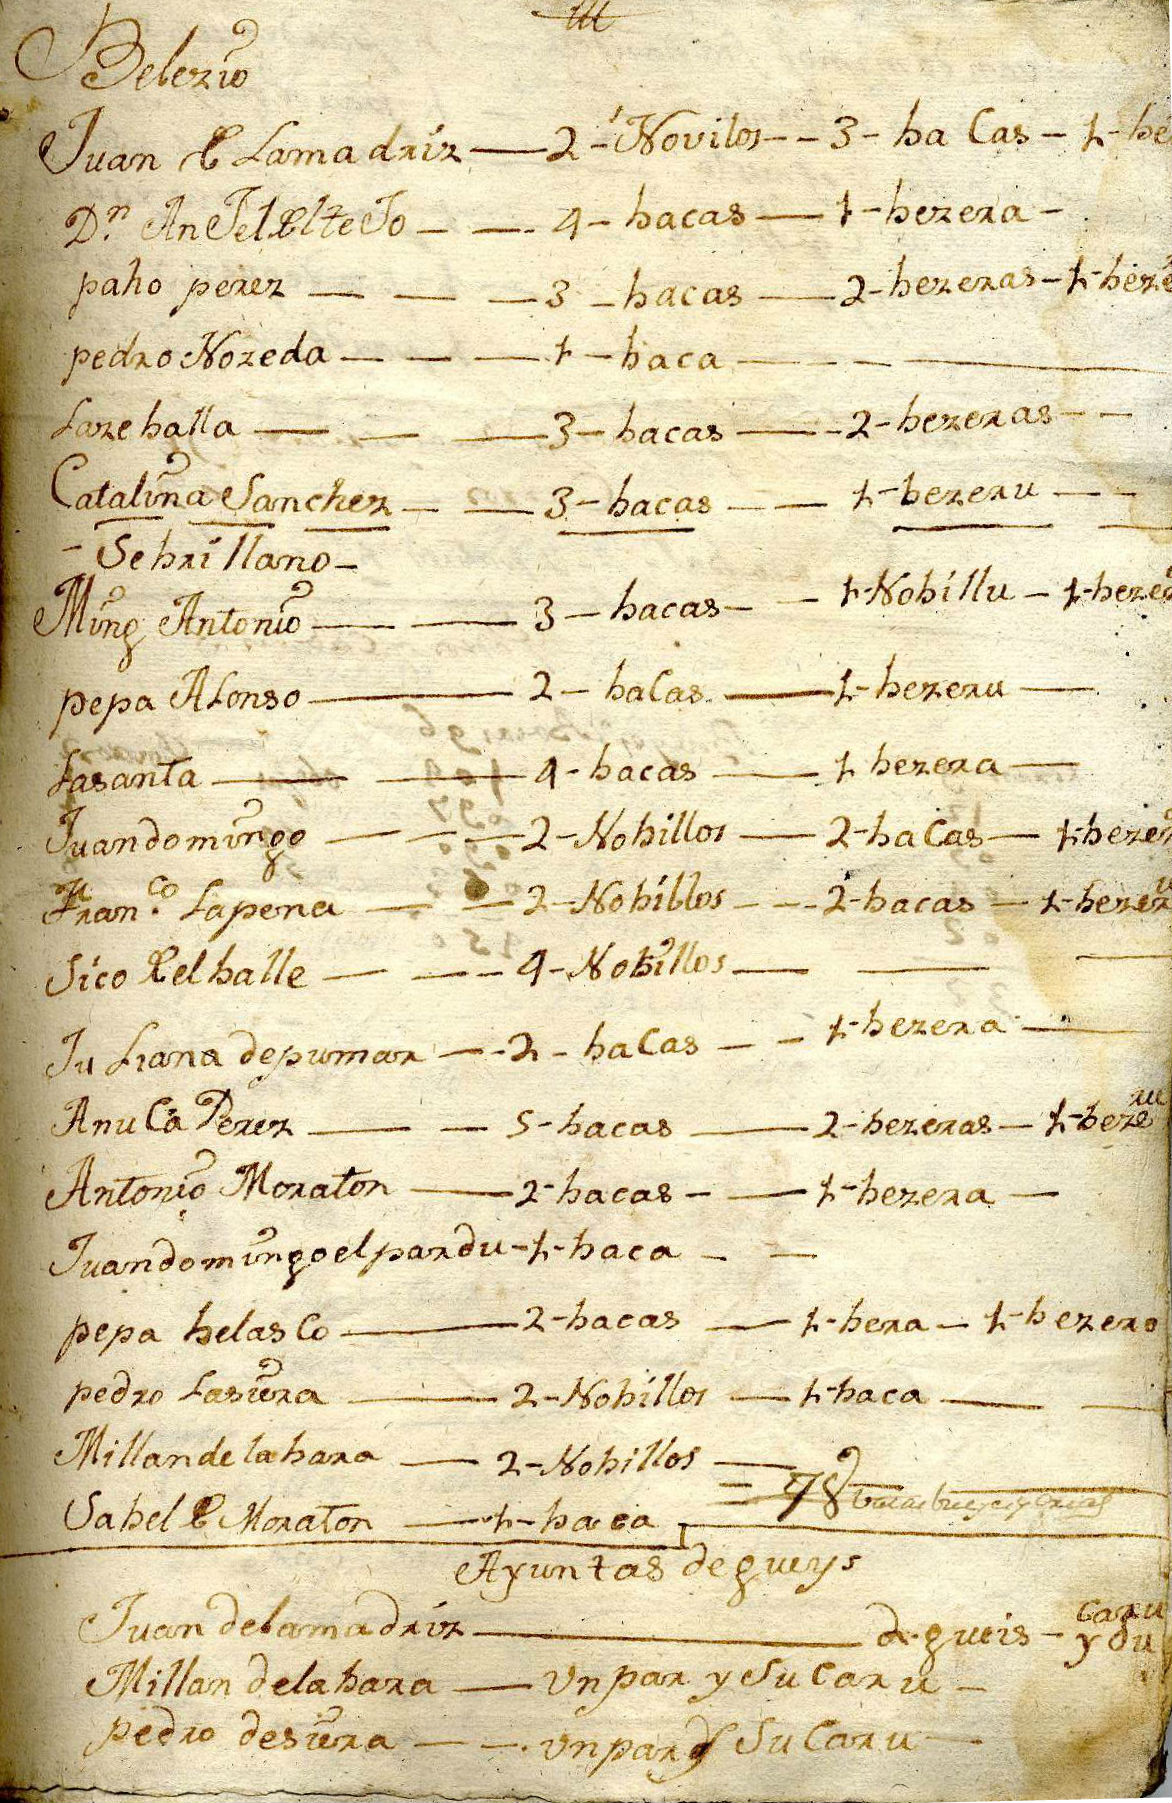 Belezio
Juan de Lamadriz — 2 - Novilos - - 3 - ha Cas - 1 - he
Dn. AnJel — — 4 - hacas — 1 - hezera -
paho perez — — — 3 - hacas — 2 - hezeras - 1 - heze
pedro Nozeda — — — 1 - haca — — —
Laze halla — — — 3 - hacas — 2 - hezeras - -
Catalina Sanchez — — 3 - hacas — — 1 - hezeru — -
- Sebrillano -
Ming Antonio — — 3 - hacas - - 1 - Nohillu - 1 - heze
pepa ALonso — 2 - haCas — 1 - hezeru —
Lasanta — — 4 - hacas — 1 hezera —
Juandomingo — — — 2 - Nohillos — 2 - haCas — 1 - heze
Fran.co Lapena — — 2 - Nohillos - - - 2 - hacas — 1 - hezeru
Sico del halle — — - 4 - Nohillos — — —
Ju Liana depumar — - 2 - haCas — - 1 - hezera —
AnuCa Perez — — 5 - hacas — 2 - hezeras — 1 - hezeru
Antonio Moraton — 2 - hacas - — 1 - hezera —
Juandomingo el pardu - 1 - haca — —
pepa helasCo — 2 - hacas — 1 - hera — 1 - hezero
pedro Lasiera — 2 - Nohillos — 1 - haca — —
Millan de la hara — 2 - Nohillos —
= 78
Sahel de Moraton — 1 - haca
Ayuntas de gueys
Juan delamadriz — gueis - Caru y Su
Millan delahara — Un par y Su Caru —
pedro desiera — — . un par y Su Caru —